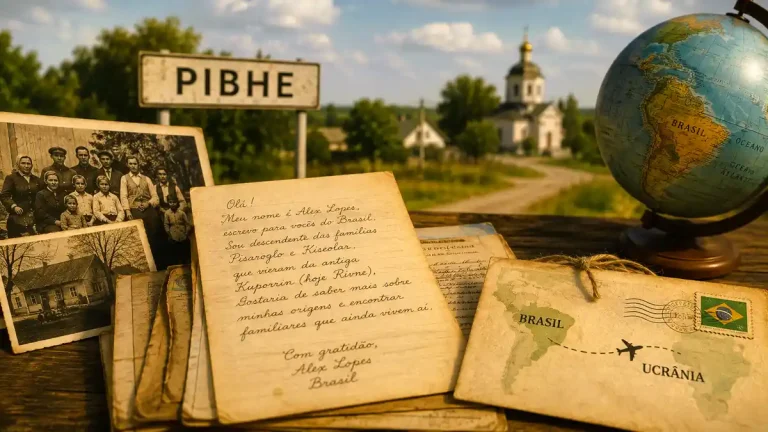 PIBHE
Olá!
Meu nome é Alex Lopes,
escrevo para vocês do Brasil.
Sou descendente das famílias
Pisaroglo e Kiseolar,
que vieram da antiga
Kuporrin (hoje Rivne),
Gostaria de saber mais sobre
minhas origens e encontrar
familiares que ainda vivem aí.
Com gratidão,
Alex Lopes
Brasil
BRASIL
OCEANO
OCEAN
BRASIL
UCRÂNIA